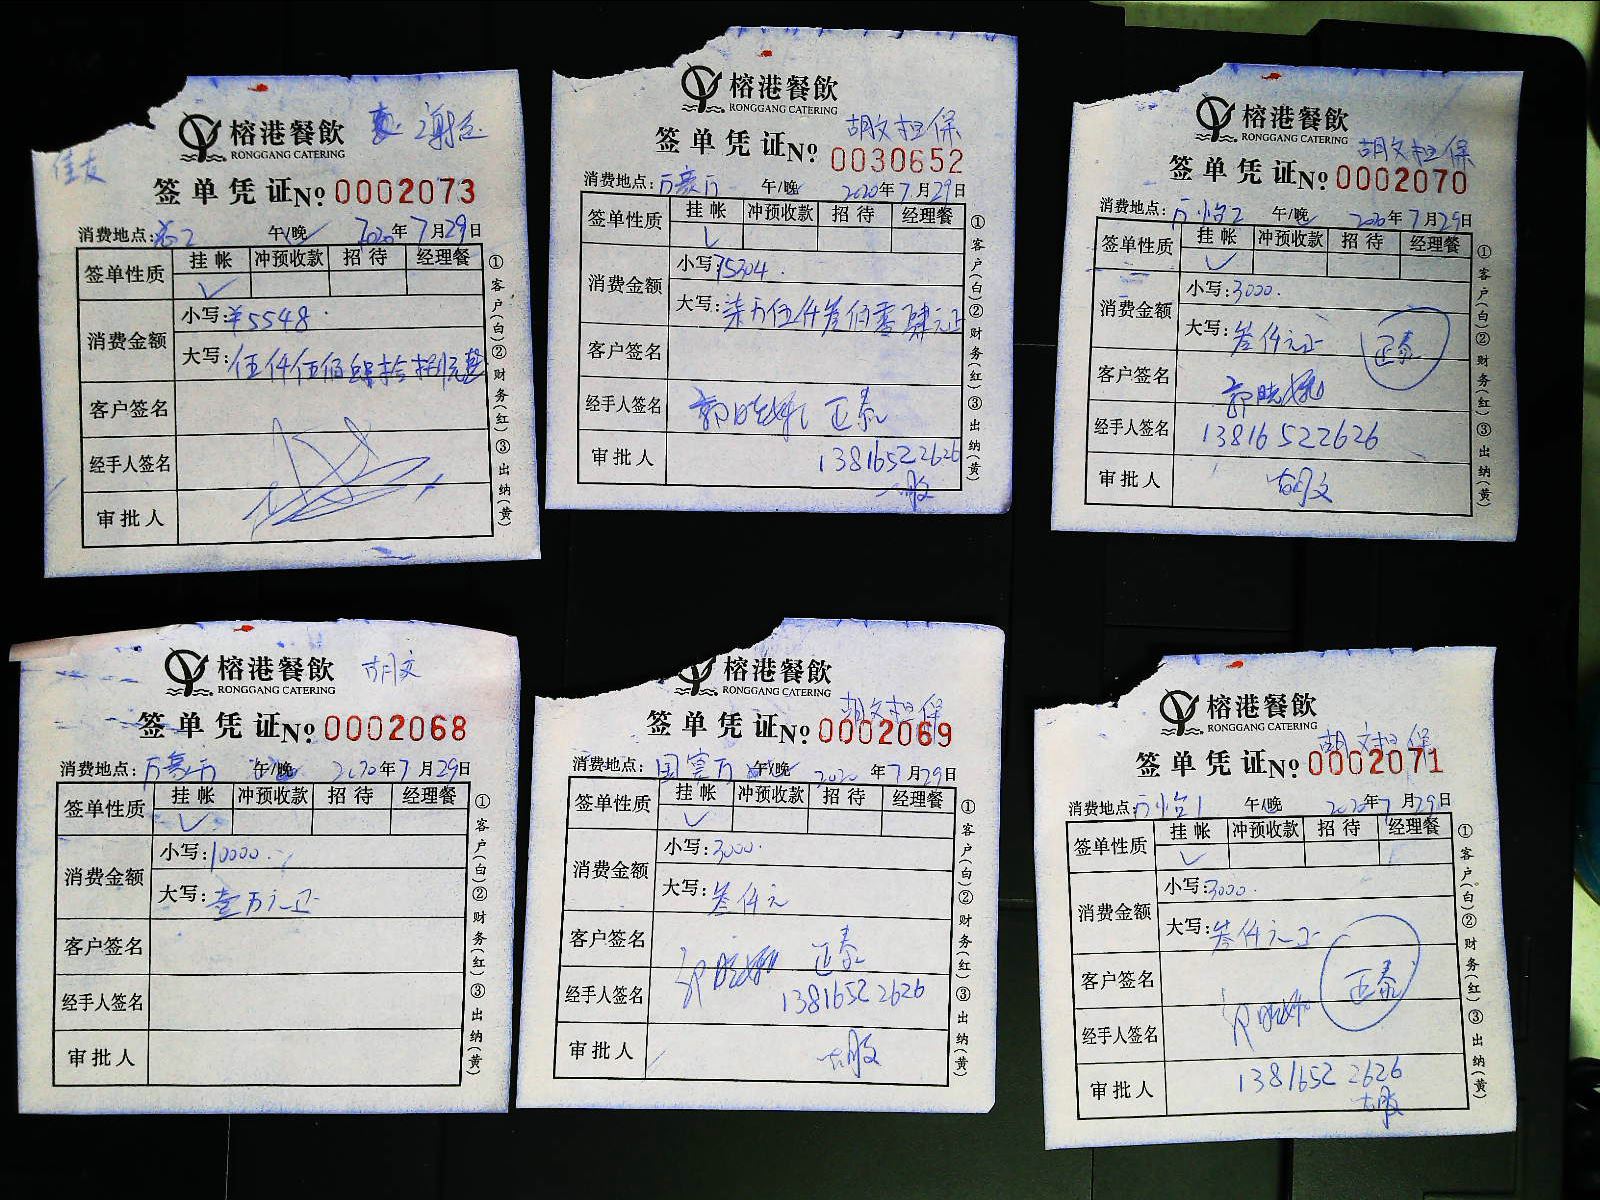 榕港餐飲
RONGGANG CATERING
签单凭证 No. 0002073
消费地点: 午/晚 2020年7月29日
签单性质 挂帐 冲预收款 招待 经理餐
✓
消费金额 小写:¥5548.
大写:伍仟伍佰肆拾捌元整
客户签名
经手人签名
审批人
①客户(白)②财务(红)③出纳(黄)
榕港餐飲
RONGGANG CATERING
胡文担保
签单凭证 No. 0030652
消费地点:万豪万 午/晚 2020年7月29日
签单性质 挂帐 冲预收款 招待 经理餐
✓
消费金额 小写:75304.
大写:柒万伍仟叁佰零肆元正
客户签名
经手人签名 郭晓 正泰
审批人 13816522626
①客户(白)②财务(红)③出纳(黄)
榕港餐飲
RONGGANG CATERING
胡文担保
签单凭证 No. 0002070
消费地点:万怡2 午/晚 2020年7月29日
签单性质 挂帐 冲预收款 招待 经理餐
✓
消费金额 小写:3000.
大写:叁仟元正 正泰
客户签名 郭晓
经手人签名 13816522626
审批人 胡文
①客户(白)②财务(红)③出纳(黄)
榕港餐飲 胡文
RONGGANG CATERING
签单凭证 No. 0002068
消费地点:万豪万 午/晚 2020年7月29日
签单性质 挂帐 冲预收款 招待 经理餐
✓
消费金额 小写:10000.
大写:壹万元正
客户签名
经手人签名
审批人
①客户(白)②财务(红)③出纳(黄)
榕港餐飲
RONGGANG CATERING
胡文担保
签单凭证 No. 0002069
消费地点:国宴万 午/晚 2020年7月29日
签单性质 挂帐 冲预收款 招待 经理餐
✓
消费金额 小写:3000.
大写:叁仟元
客户签名 正泰
经手人签名 13816522626
审批人 胡文
①客户(白)②财务(红)③出纳(黄)
榕港餐飲
RONGGANG CATERING
胡文担保
签单凭证 No. 0002071
消费地点:万怡1 午/晚 2020年7月29日
签单性质 挂帐 冲预收款 招待 经理餐
✓
消费金额 小写:3000.
大写:叁仟元正
客户签名 正泰
经手人签名
审批人 13816522626
①客户(白)②财务(红)③出纳(黄)